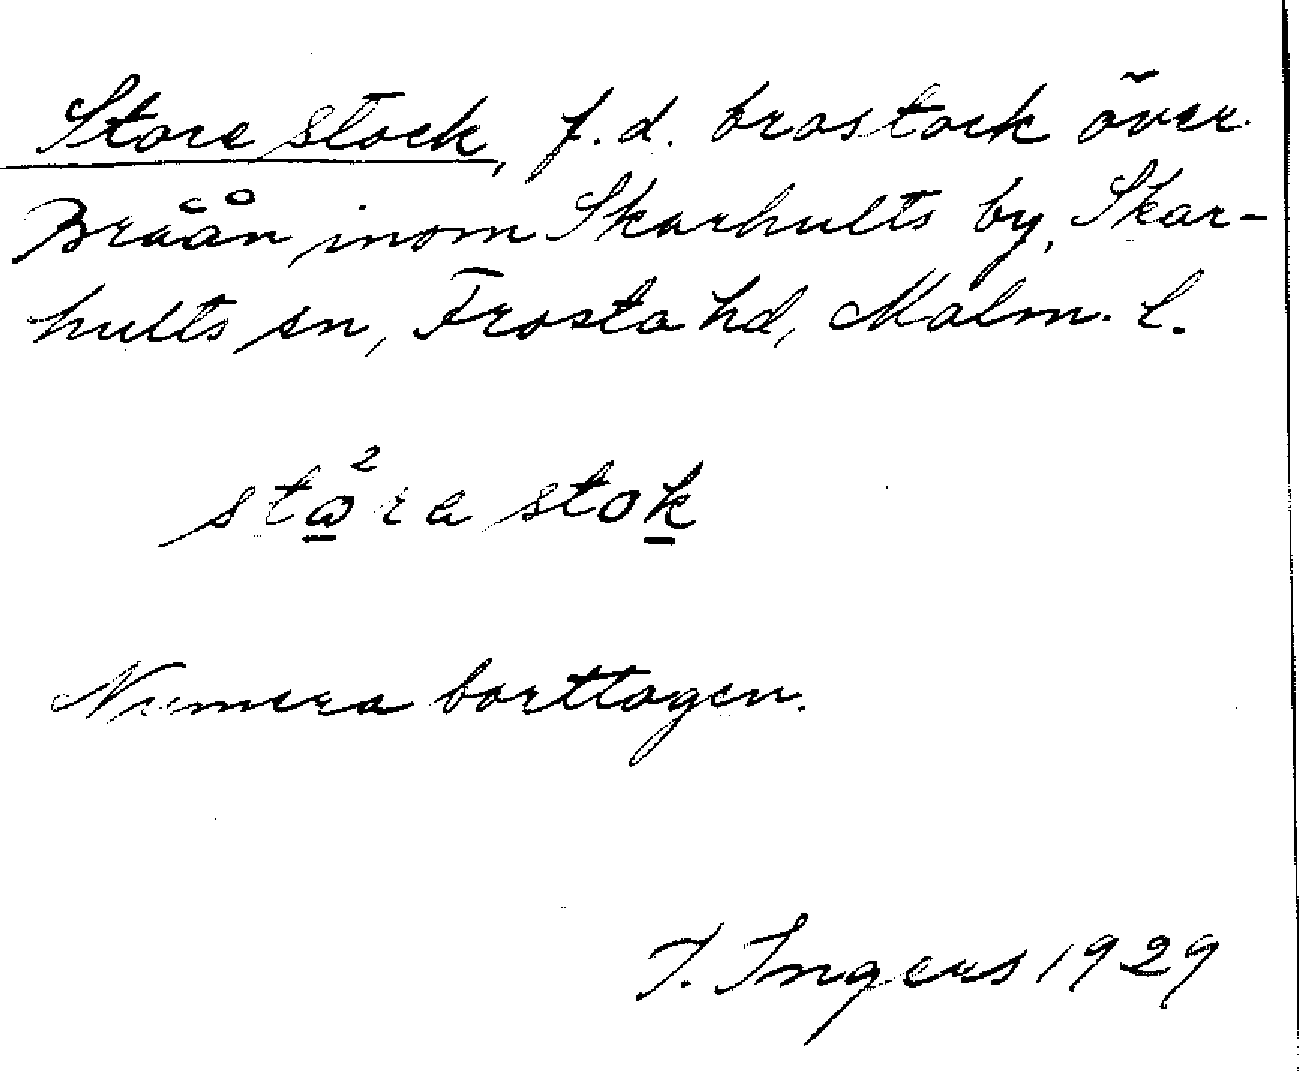 Store stock, f.d. brostock över
Braån inom Skarhults by, Skar-
hults sn, Frosta hd, Malm. l.
stå²ra stok
Numera borttagen.
I. Ingers 1929